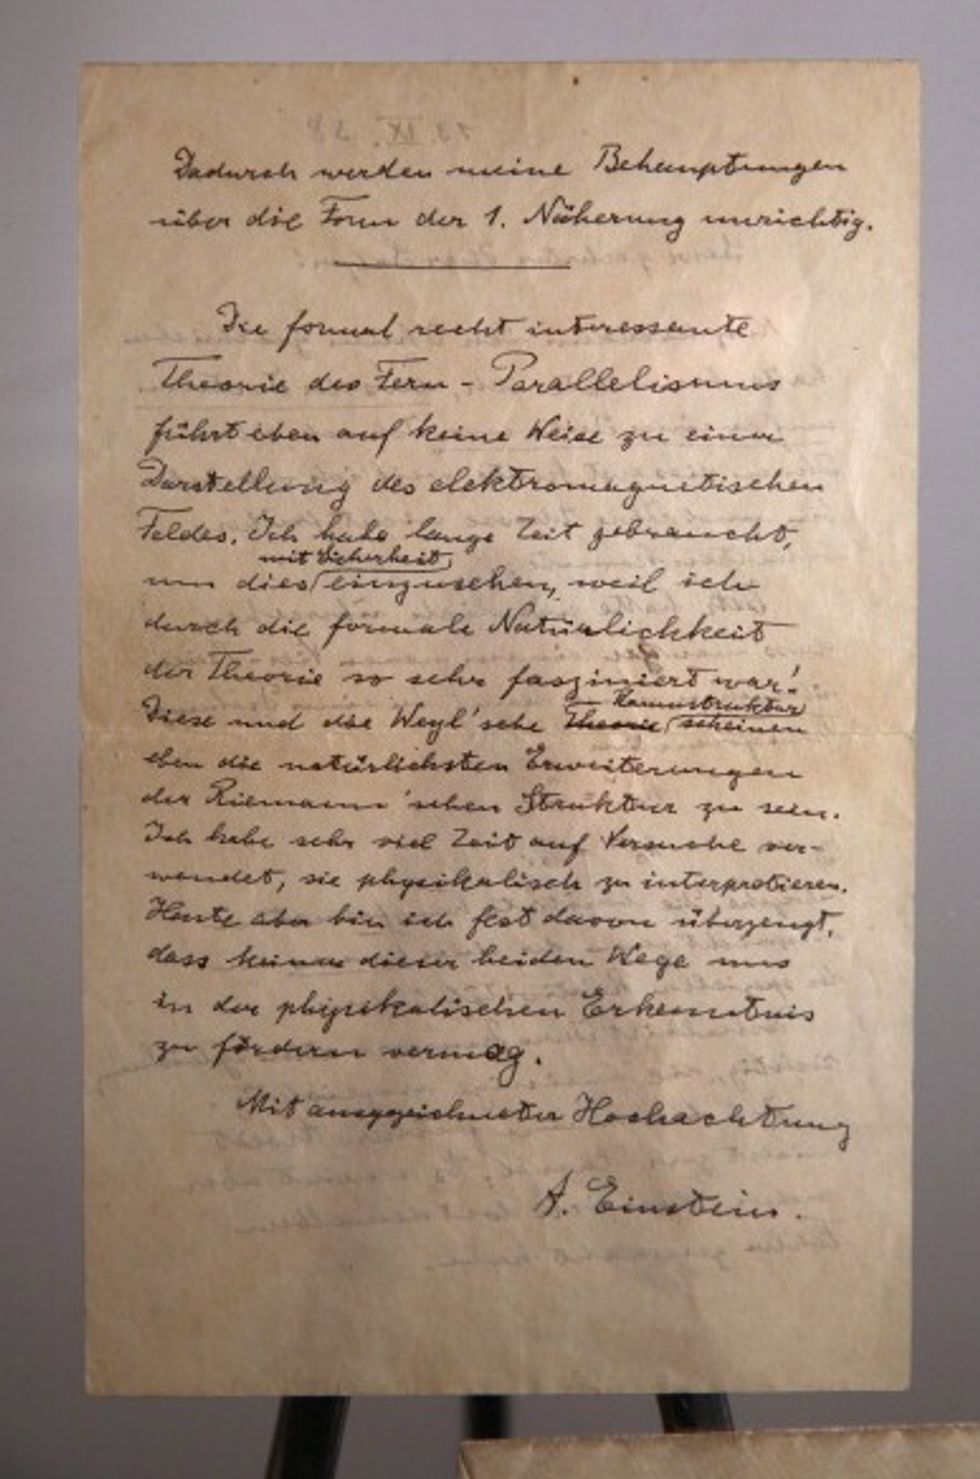 Dadurch werden meine Behauptungen
über die Form der 1. Näherung unrichtig.
Die formal recht interessante
Theorie des Fern - Parallelismus
führt eben auf keine Weise zu einer
Darstellung des elektromagnetischen
Feldes. Ich habe lange Zeit gebraucht,
mit Sicherheit
um dies einzusehen, weil ich
durch die formale Natürlichkeit
der Theorie so sehr fasziniert war!
Raumstruktur
Diese und die Weyl'sche Theorie scheinen
eben die natürlichsten Erweiterungen
der Riemann'schen Struktur zu sein.
Ich habe sehr viel Zeit auf Versuche ver-
wendet, sie physikalisch zu interpretieren.
Heute aber bin ich fest davon überzeugt,
dass keiner dieser beiden Wege uns
in der physikalischen Erkenntnis
zu fördern vermag.
Mit ausgezeichneter Hochachtung
A. Einstein.